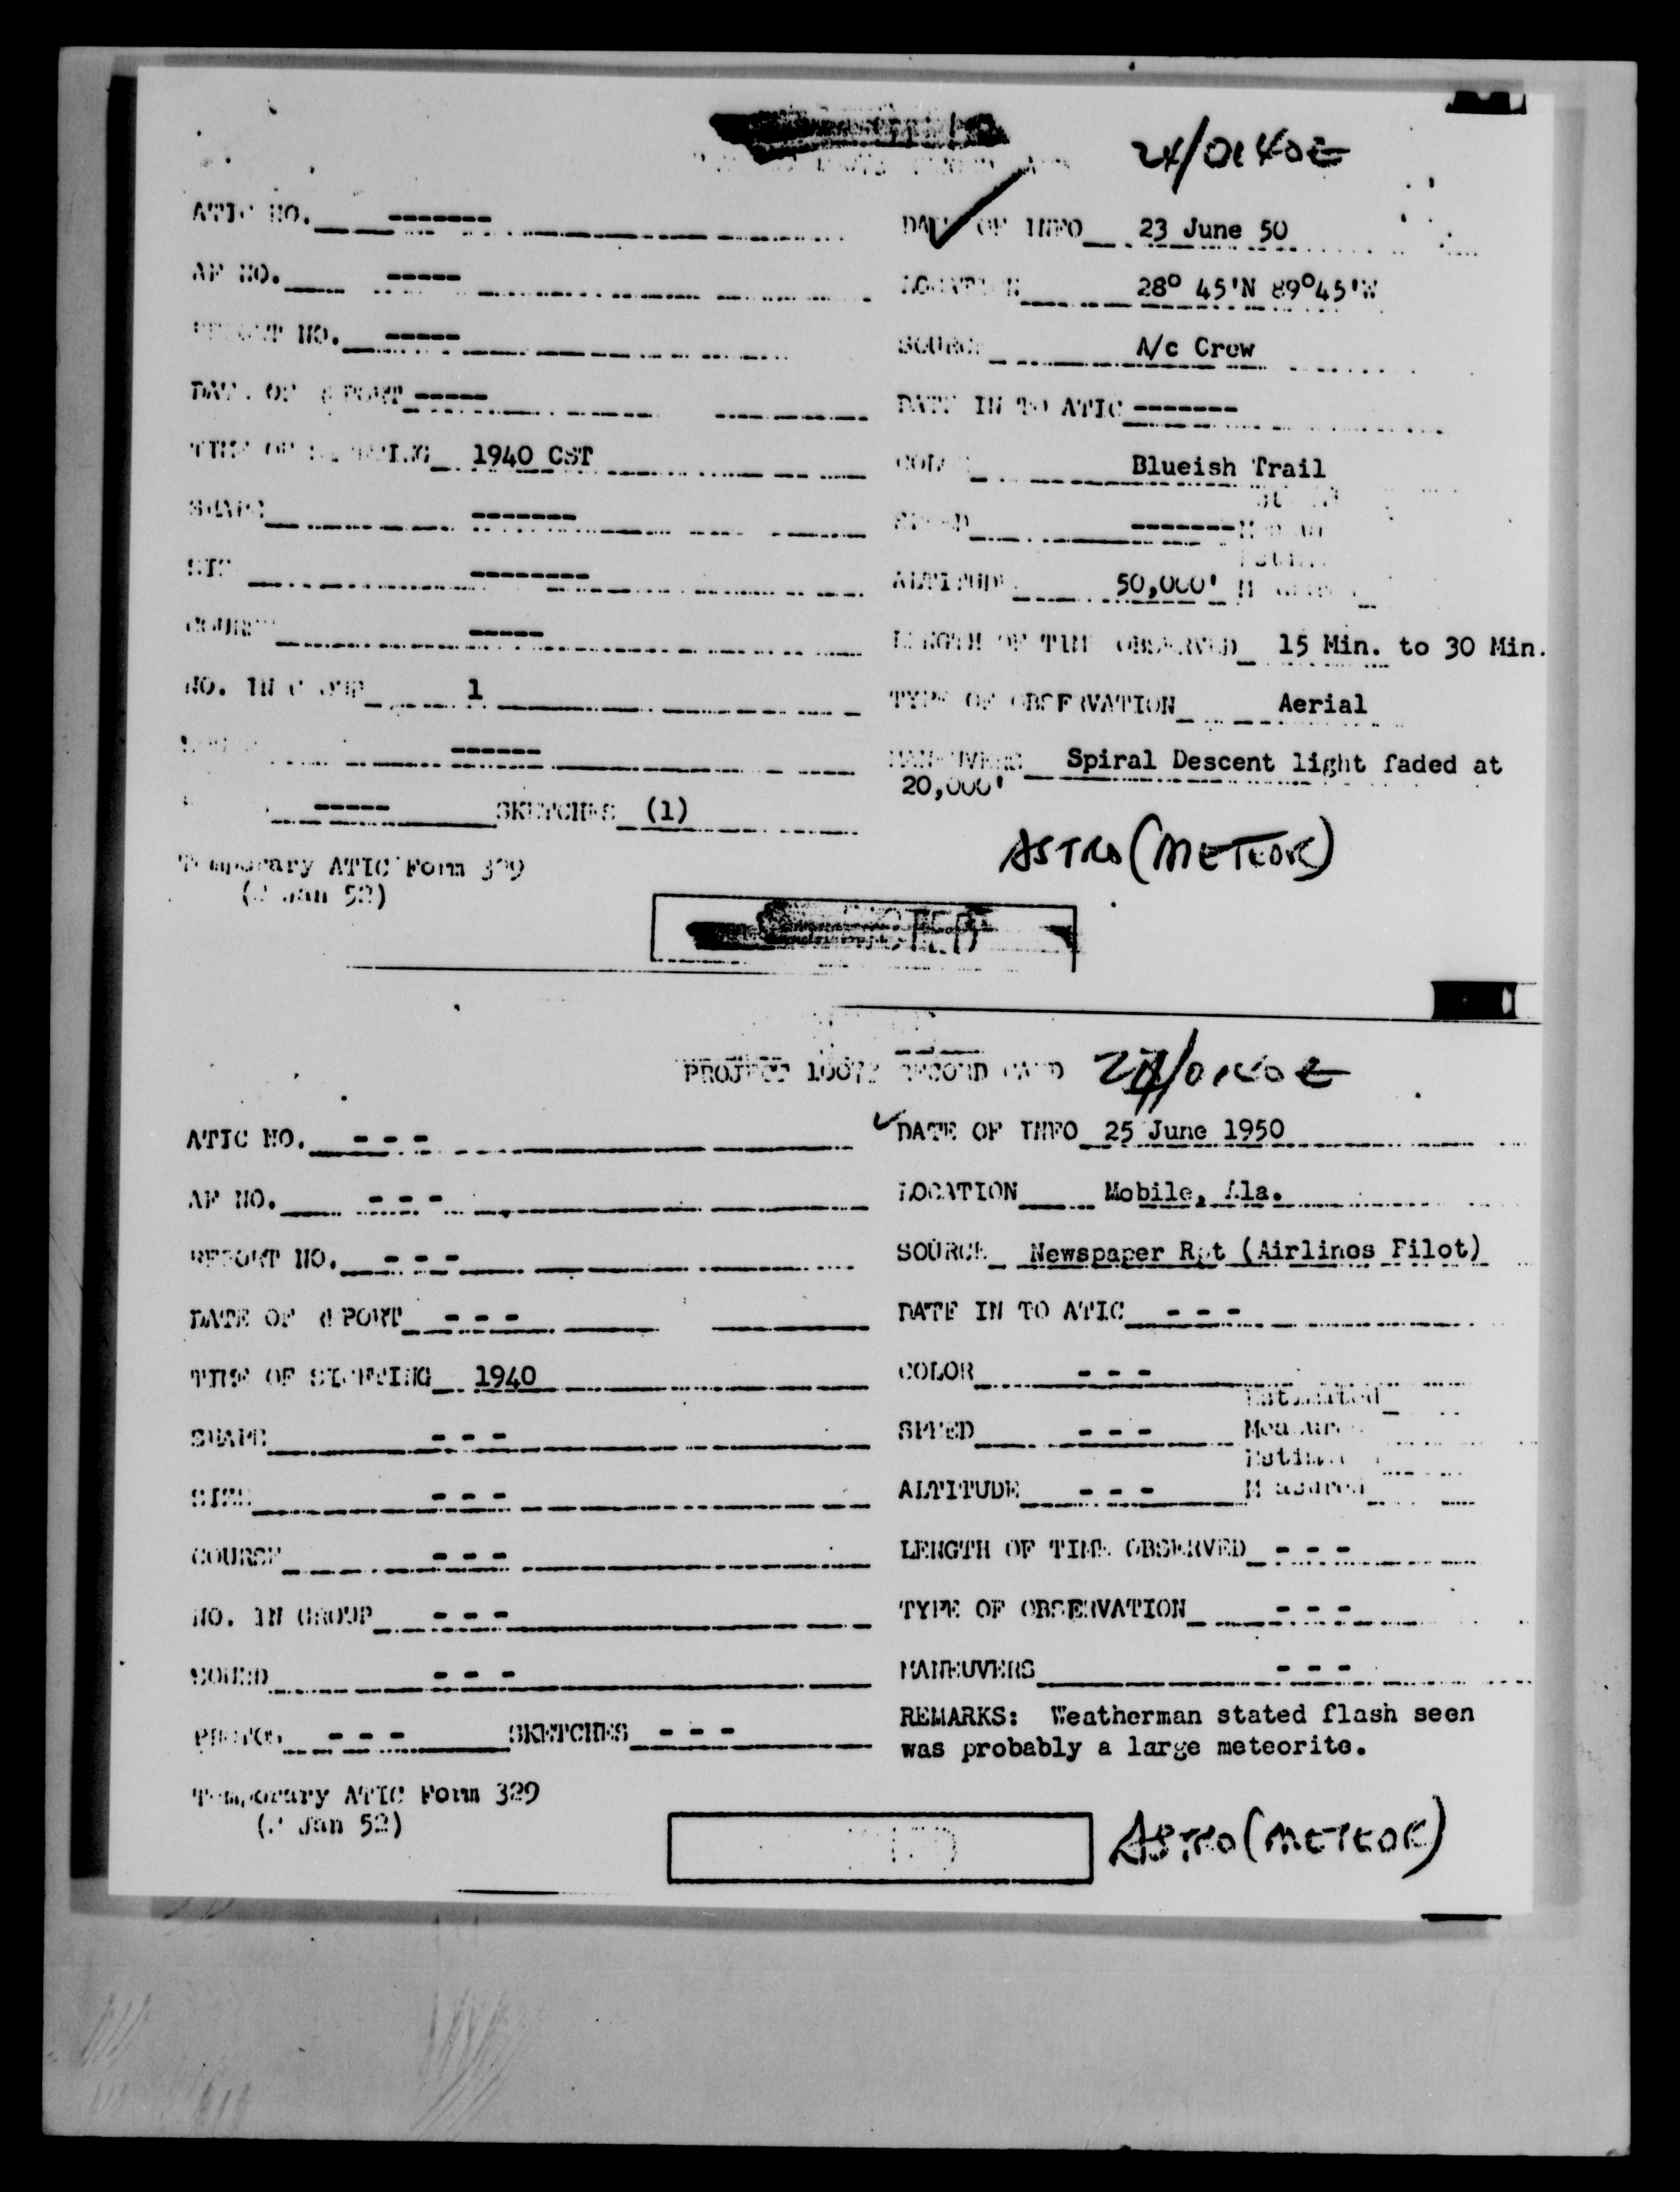 24/0140Z
ATIC NO. ------- DATE OF INFO 23 June 50
AF NO. ----- LOCATION 28° 45'N 89°45'W
REPORT NO. ----- SOURCE A/c Crew
DATE OF REPORT ----- DATE IN TO ATIC -------
TIME OF SIGHTING 1940 CST COLOR Blueish Trail
SHAPE ------- SPEED -------
SIZE -------- ALTITUDE 50,000'
COURSE ----- LENGTH OF TIME OBSERVED 15 Min. to 30 Min.
NO. IN GROUP 1 TYPE OF OBSERVATION Aerial
------ MANEUVERS Spiral Descent light faded at
20,000'
----- SKETCHES (1)
ASTRO (METEOR)
Temporary ATIC Form 329
(2 Jan 52)
PROJECT 10073 RECORD CARD 24/0140Z
ATIC NO. - - - DATE OF INFO 25 June 1950
AF NO. - - - LOCATION Mobile, Ala.
REPORT NO. - - - SOURCE Newspaper Rpt (Airlines Pilot)
DATE OF REPORT - - - DATE IN TO ATIC - - -
TIME OF SIGHTING 1940 COLOR - - -
Estimated
SHAPE - - - SPEED - - - Measured
Estimated
SIZE - - - ALTITUDE - - - Measured
COURSE - - - LENGTH OF TIME OBSERVED - - -
NO. IN GROUP - - - TYPE OF OBSERVATION - - -
SOUND - - - MANEUVERS - - -
PHOTOS - - - SKETCHES - - - REMARKS: Weatherman stated flash seen
was probably a large meteorite.
Temporary ATIC Form 329
(2 Jan 52)
ASTRO (METEOR)